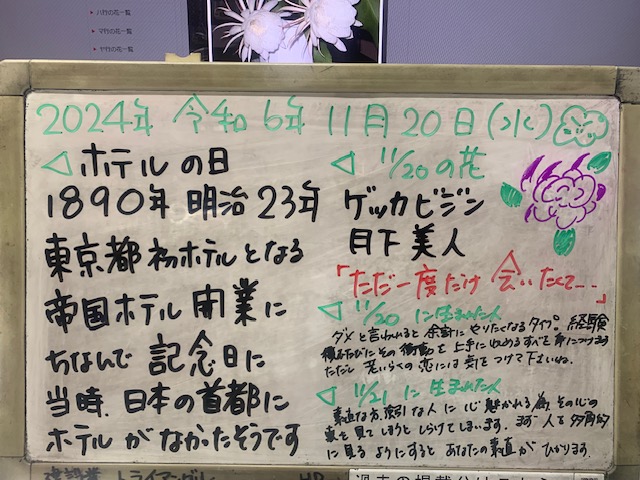 ハ行の花一覧
マ行の花一覧
ヤ行の花一覧
2024年 令和6年 11月20日(水)
◁ホテルの日
1890年 明治23年
東京都初ホテルとなる
帝国ホテル開業に
ちなんで記念日に
当時、日本の首都に
ホテルがなかったそうです
◁11/20の花
ゲッカビジン
月下美人
「ただ一度だけ会いたくて…」
◁11/20に生まれた人
ダメと言われると余計にやりたくなるタイプ。経験
積むたびにその衝動を上手に収めるすべを身につけます
ただし老いらくの恋には気をつけて下さいね。
◁11/21に生まれた人
素直な方、強引な人に心魅かれる為、その心の
裏を見てしまうとしらけてしまいます。まず人を多角的
に見るようにするとあなたの素直がひかります。
建設業 トライアングル